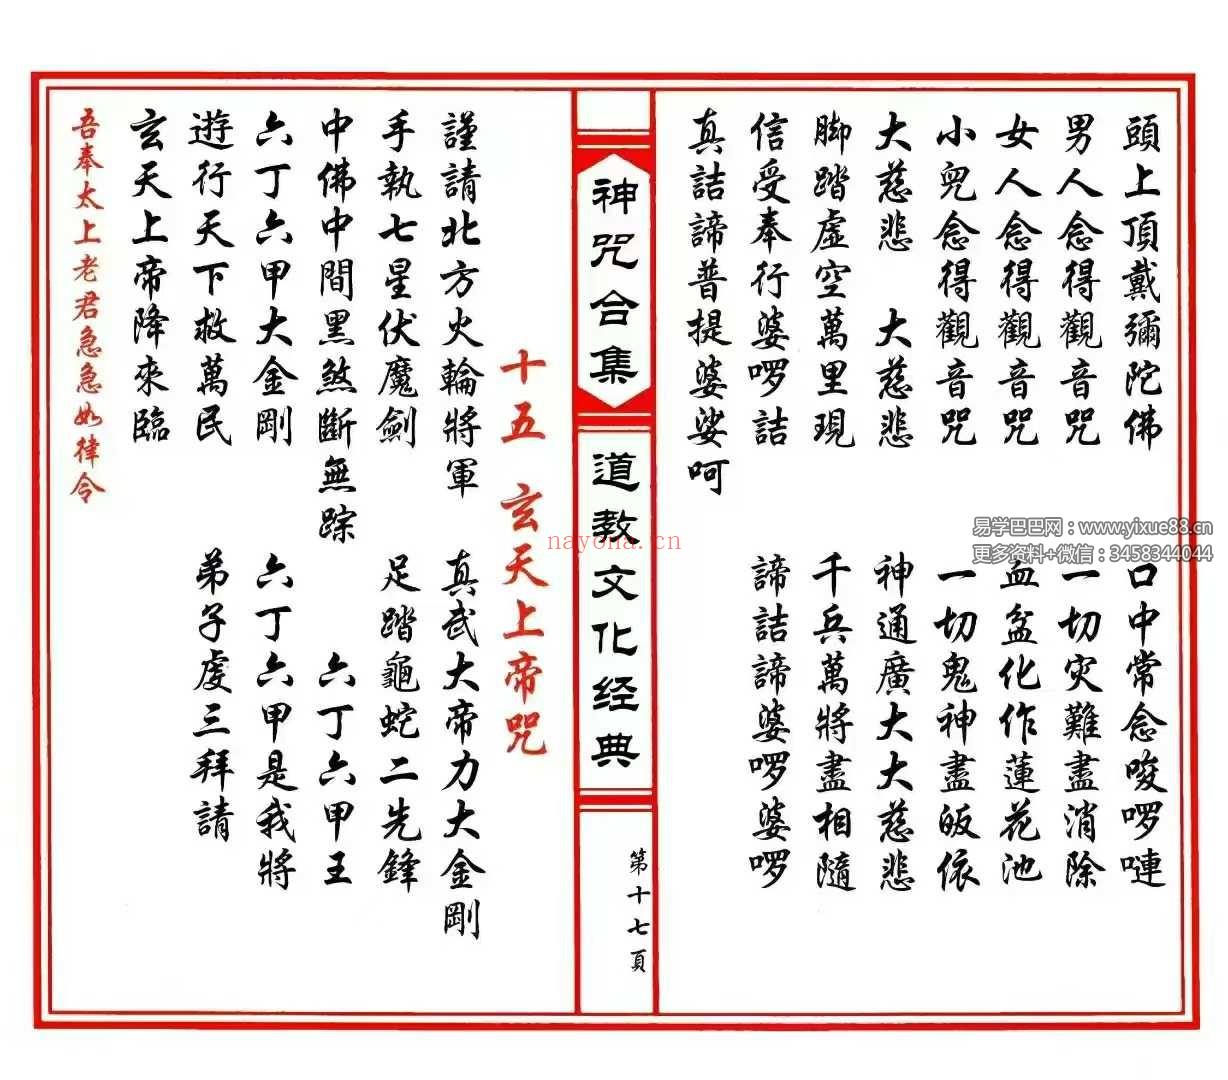 頭上頂戴彌陀佛　口中常念唆啰嗹
男人念得觀音咒　一切灾難盡消除
女人念得觀音咒　血盆化作蓮花池
小兒念得觀音咒　一切鬼神盡皈依
大慈悲　大慈悲　神通廣大大慈悲
脚踏虛空萬里現　千兵萬將盡相隨
信受奉行婆啰詰　諦詰諦婆啰婆啰
真詰諦普提婆娑呵
神咒合集
道教文化经典
第十七頁
十五　玄天上帝咒
謹請北方火輪將軍　真武大帝力大金剛
手執七星伏魔劍　足踏龜蛇二先鋒
中佛中間黑煞斷無踪　六丁六甲王
六丁六甲大金剛　六丁六甲是我將
遊行天下救萬民　弟子虔三拜請
玄天上帝降來臨
吾奉太上老君急急如律令
nayona.cn
易学巴巴网：www.yixue88.cn
更多资料+微信：3458344044